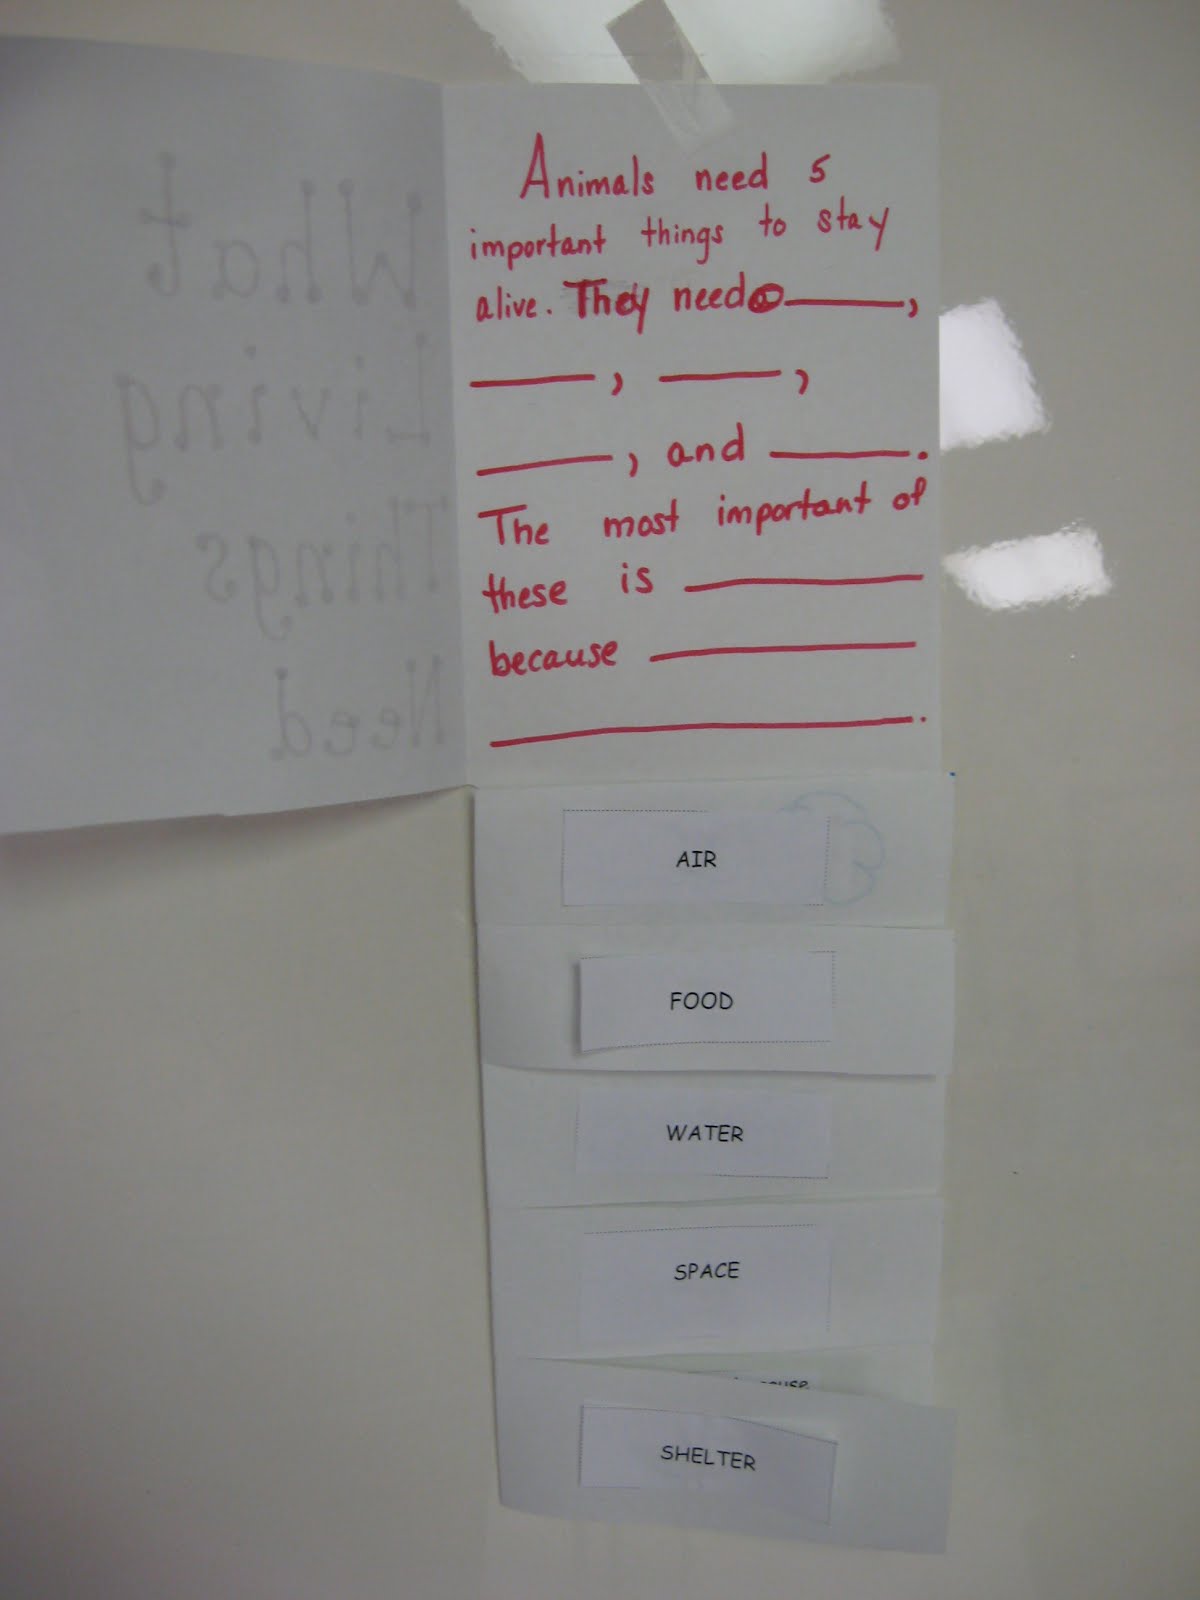 What
Living
Things
Need
Animals need 5
important things to stay
alive. They need ______,
______, ______,
______, and ______.
The most important of
these is ______
because ______
______.
AIR
FOOD
WATER
SPACE
SHELTER